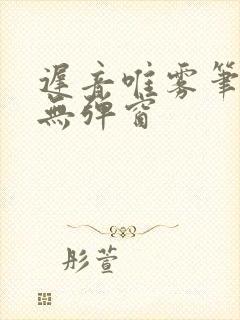 遲音唯雾筆
無彈窗
彤萱